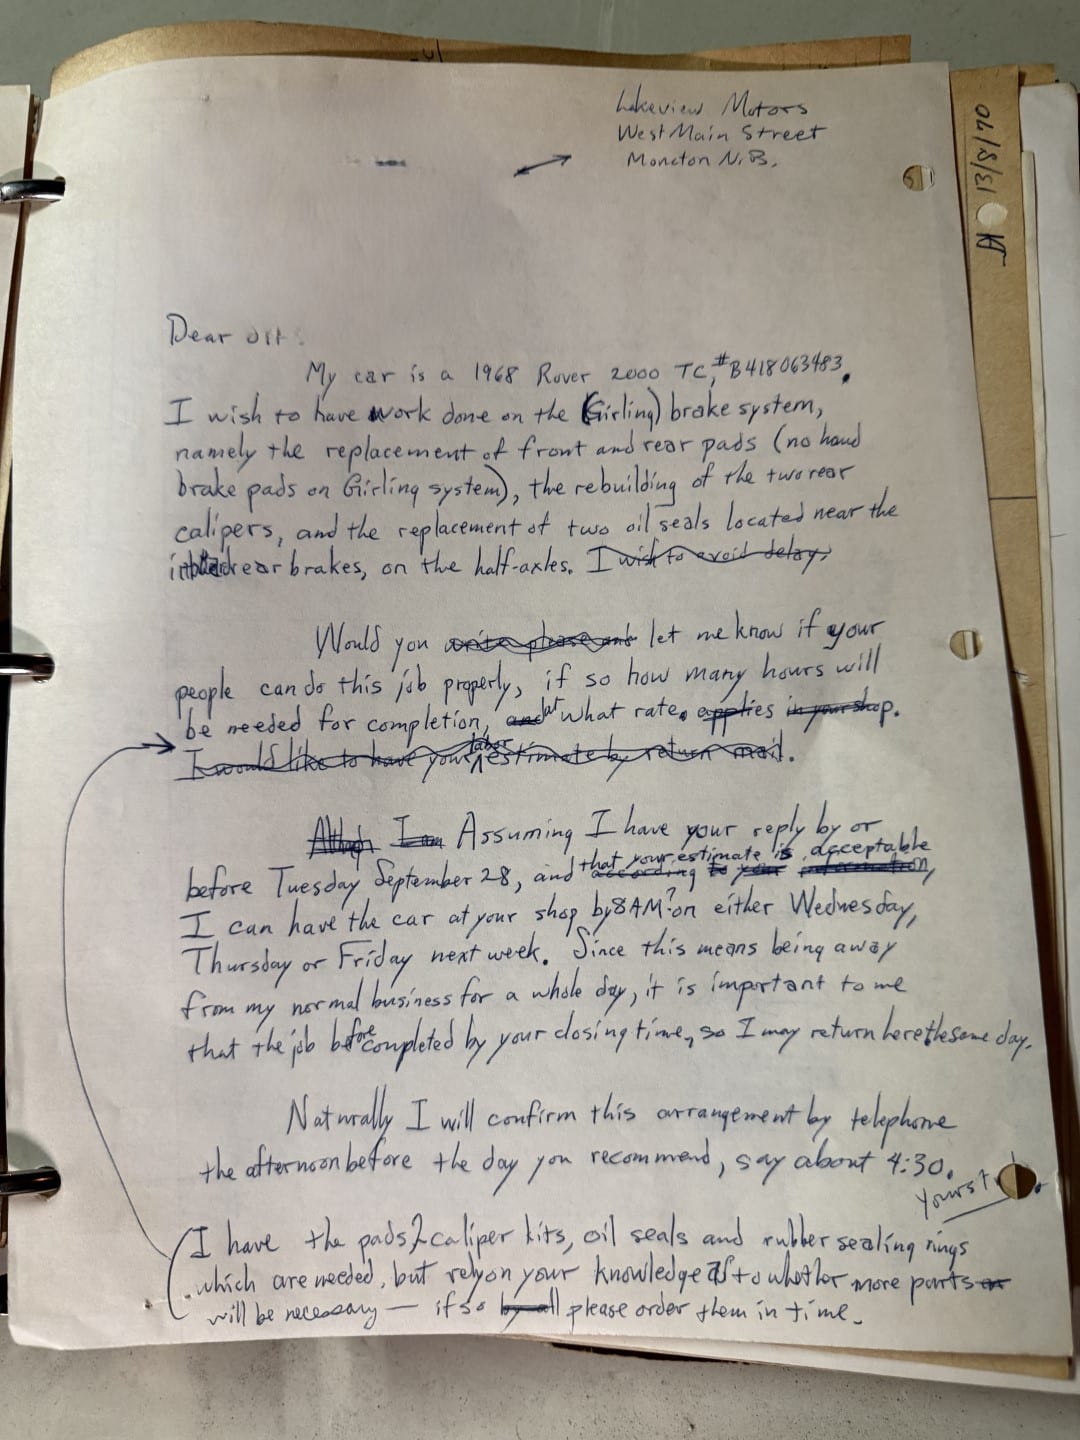 Lakeview Motors
West Main Street
Moncton N.B.
13/8/70
Dear
My car is a 1968 Rover 2000 TC, #B418063483.
I wish to have work done on the (Girling) brake system,
namely the replacement of front and rear pads (no hand
brake pads on Girling system), the rebuilding of the two rear
calipers, and the replacement of two oil seals located near the
rear brakes, on the half-axles. I wish to avoid delay,
Would you write please and let me know if your
people can do this job properly, if so how many hours will
be needed for completion, and at what rate. applies in your shop.
I would like to have your labor estimate by return mail.
I am Assuming I have your reply by or
before Tuesday September 28, and according to your information, that your estimate is acceptable
I can have the car at your shop by 8AM? on either Wednesday,
Thursday or Friday next week. Since this means being away
from my normal business for a whole day, it is important to me
that the job before completed by your closing time, so I may return here the same day.
Naturally I will confirm this arrangement by telephone
the afternoon before the day you recommend, say about 4:30.
Yours
(I have the pads, 2 caliper kits, oil seals and rubber sealing rings
which are needed, but rely on your knowledge as to whether more parts or
will be necessary — if so by all please order them in time.